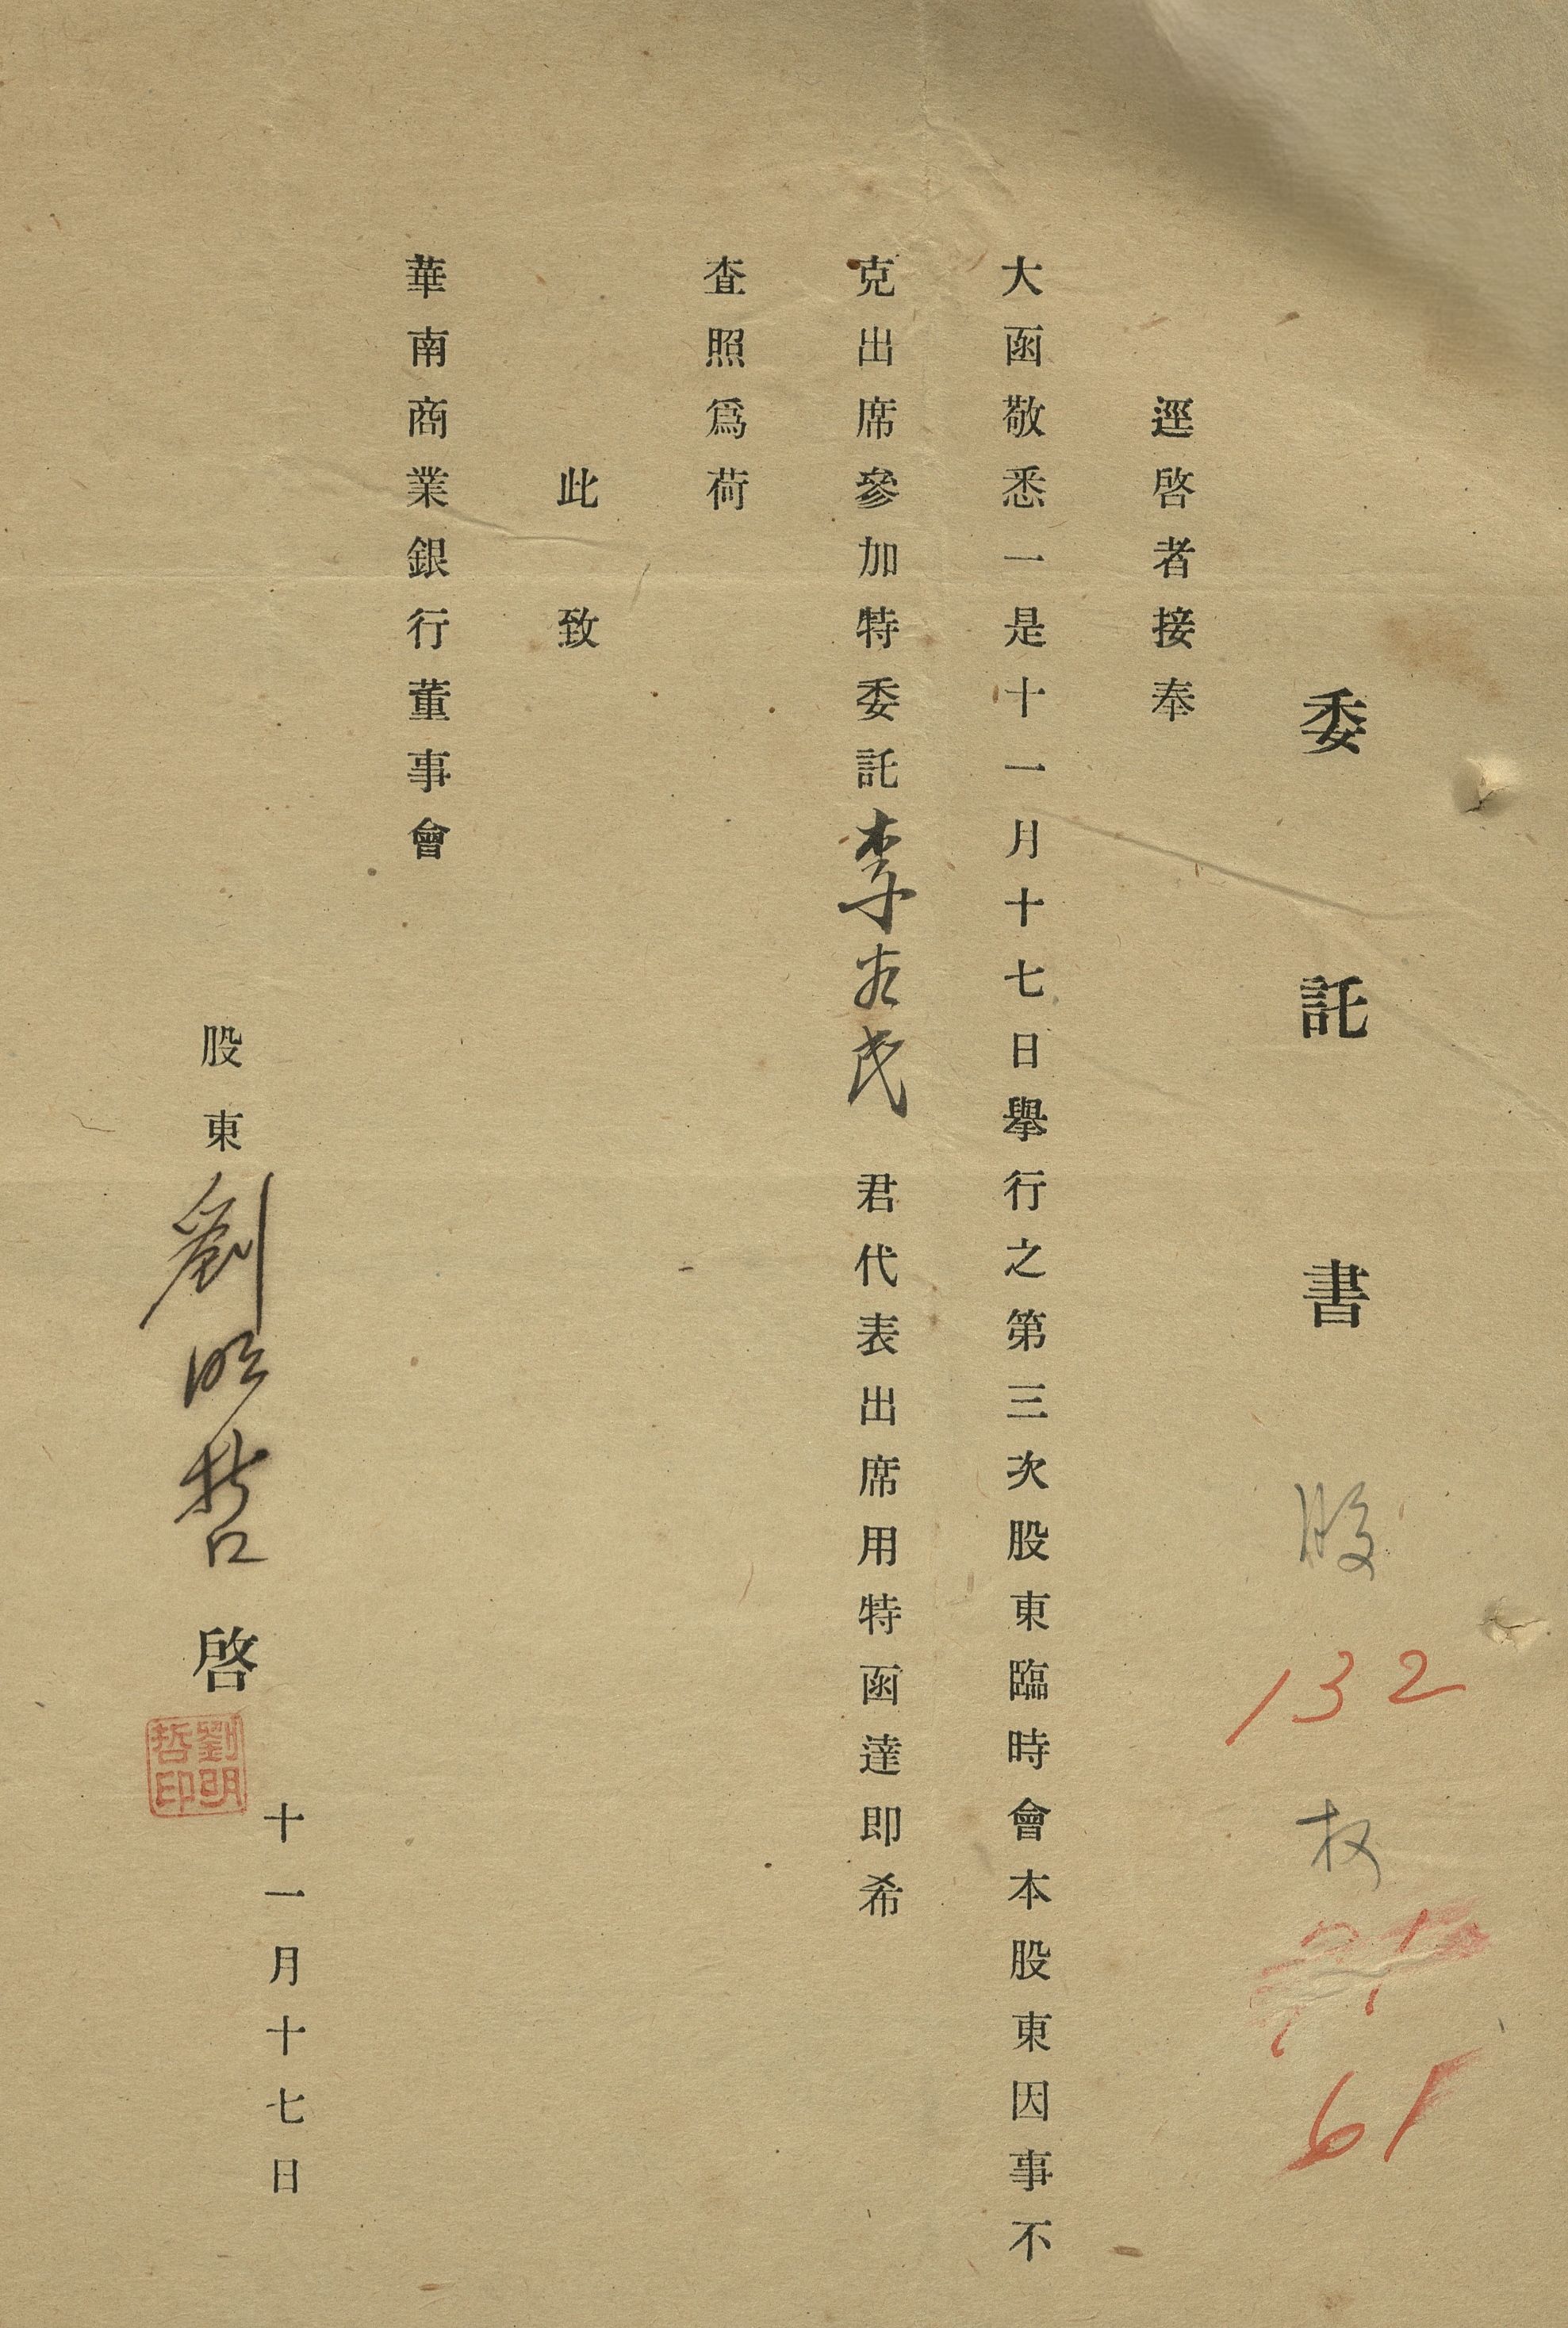 委託書
股 132
权
61
逕啓者接奉
大函敬悉一是十一月十七日舉行之第三次股東臨時會本股東因事不
克出席參加特委託李友民 君代表出席用特函達即希
查照爲荷
此致
華南商業銀行董事會
股東劉明哲 啓
劉明
哲印
十一月十七日